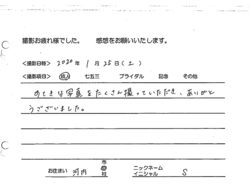 撮影お疲れ様でした。 感想をお願いいたします。
<撮影日時> 2020年 1月 25日(土)
<撮影項目> 成人 七五三 ブライダル 記念 その他
お写真をたくさん撮っていただき、ありがと
うございました。
お住まい 河内 市 郡 区 ニックネーム イニシャル S